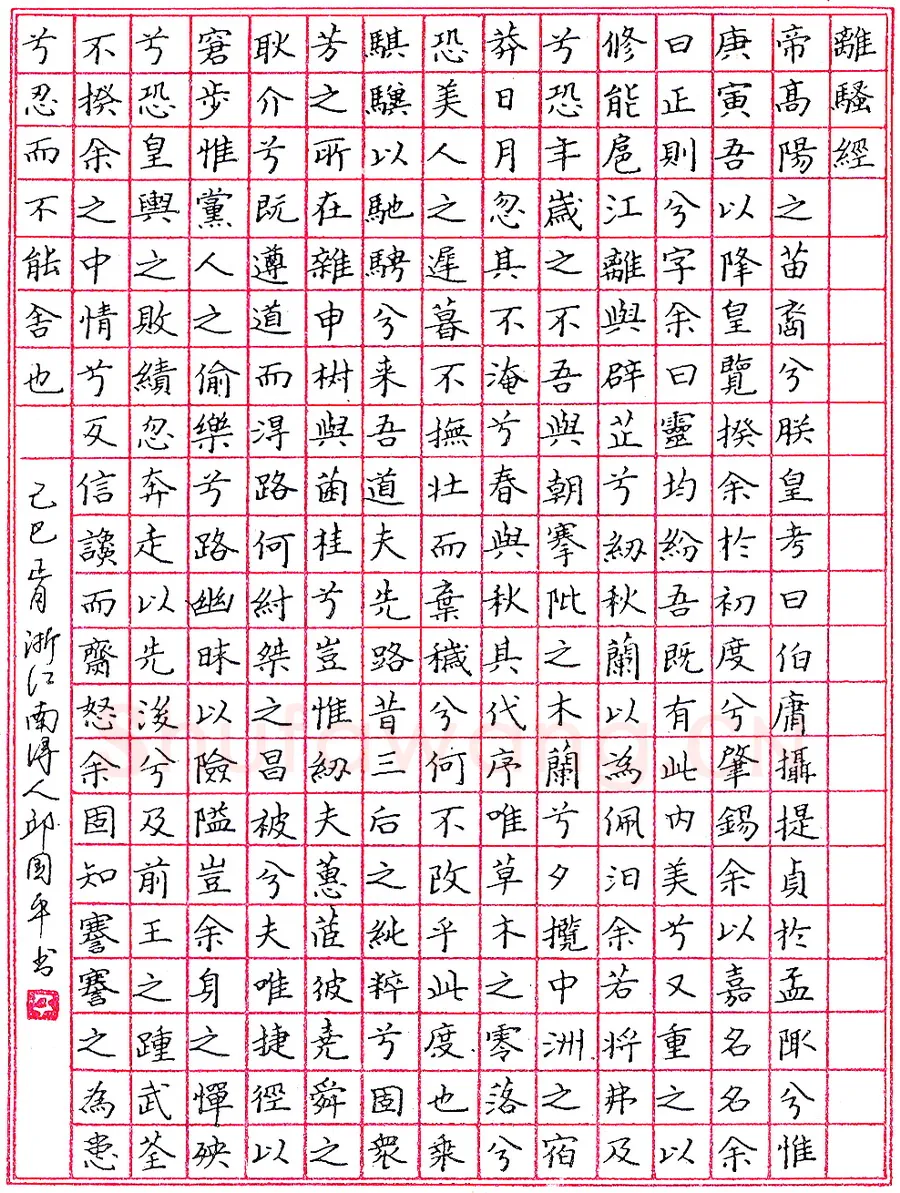 離騷經
帝高陽之苗裔兮朕皇考曰伯庸攝提貞於孟陬兮惟
庚寅吾以降皇覽揆余於初度兮肇錫余以嘉名名余
曰正則兮字余曰靈均紛吾既有此内美兮又重之以
修能扈江離與辟芷兮紉秋蘭以為佩汩余若將弗及
兮恐年歲之不吾與朝搴阰之木蘭兮夕攬中洲之宿
莽日月忽其不淹兮春與秋其代序唯草木之零落兮
恐美人之遲暮不撫壯而棄穢兮何不改乎此度也乘
騏驥以馳騁兮来吾道夫先路昔三后之純粹兮固眾
芳之所在雜申椒與菌桂兮豈惟紉夫蕙茝彼堯舜之
耿介兮既遵道而得路何紂桀之昌被兮夫唯捷徑以
窘步惟黨人之偷樂兮路幽昧以險隘豈余身之憚殃
兮恐皇輿之敗績忽奔走以先後兮及前王之踵武荃
不揆余之中情兮反信讒而齋怒余固知謇謇之為患
兮忍而不能舍也
己巳正月浙江南潯人邱国平书